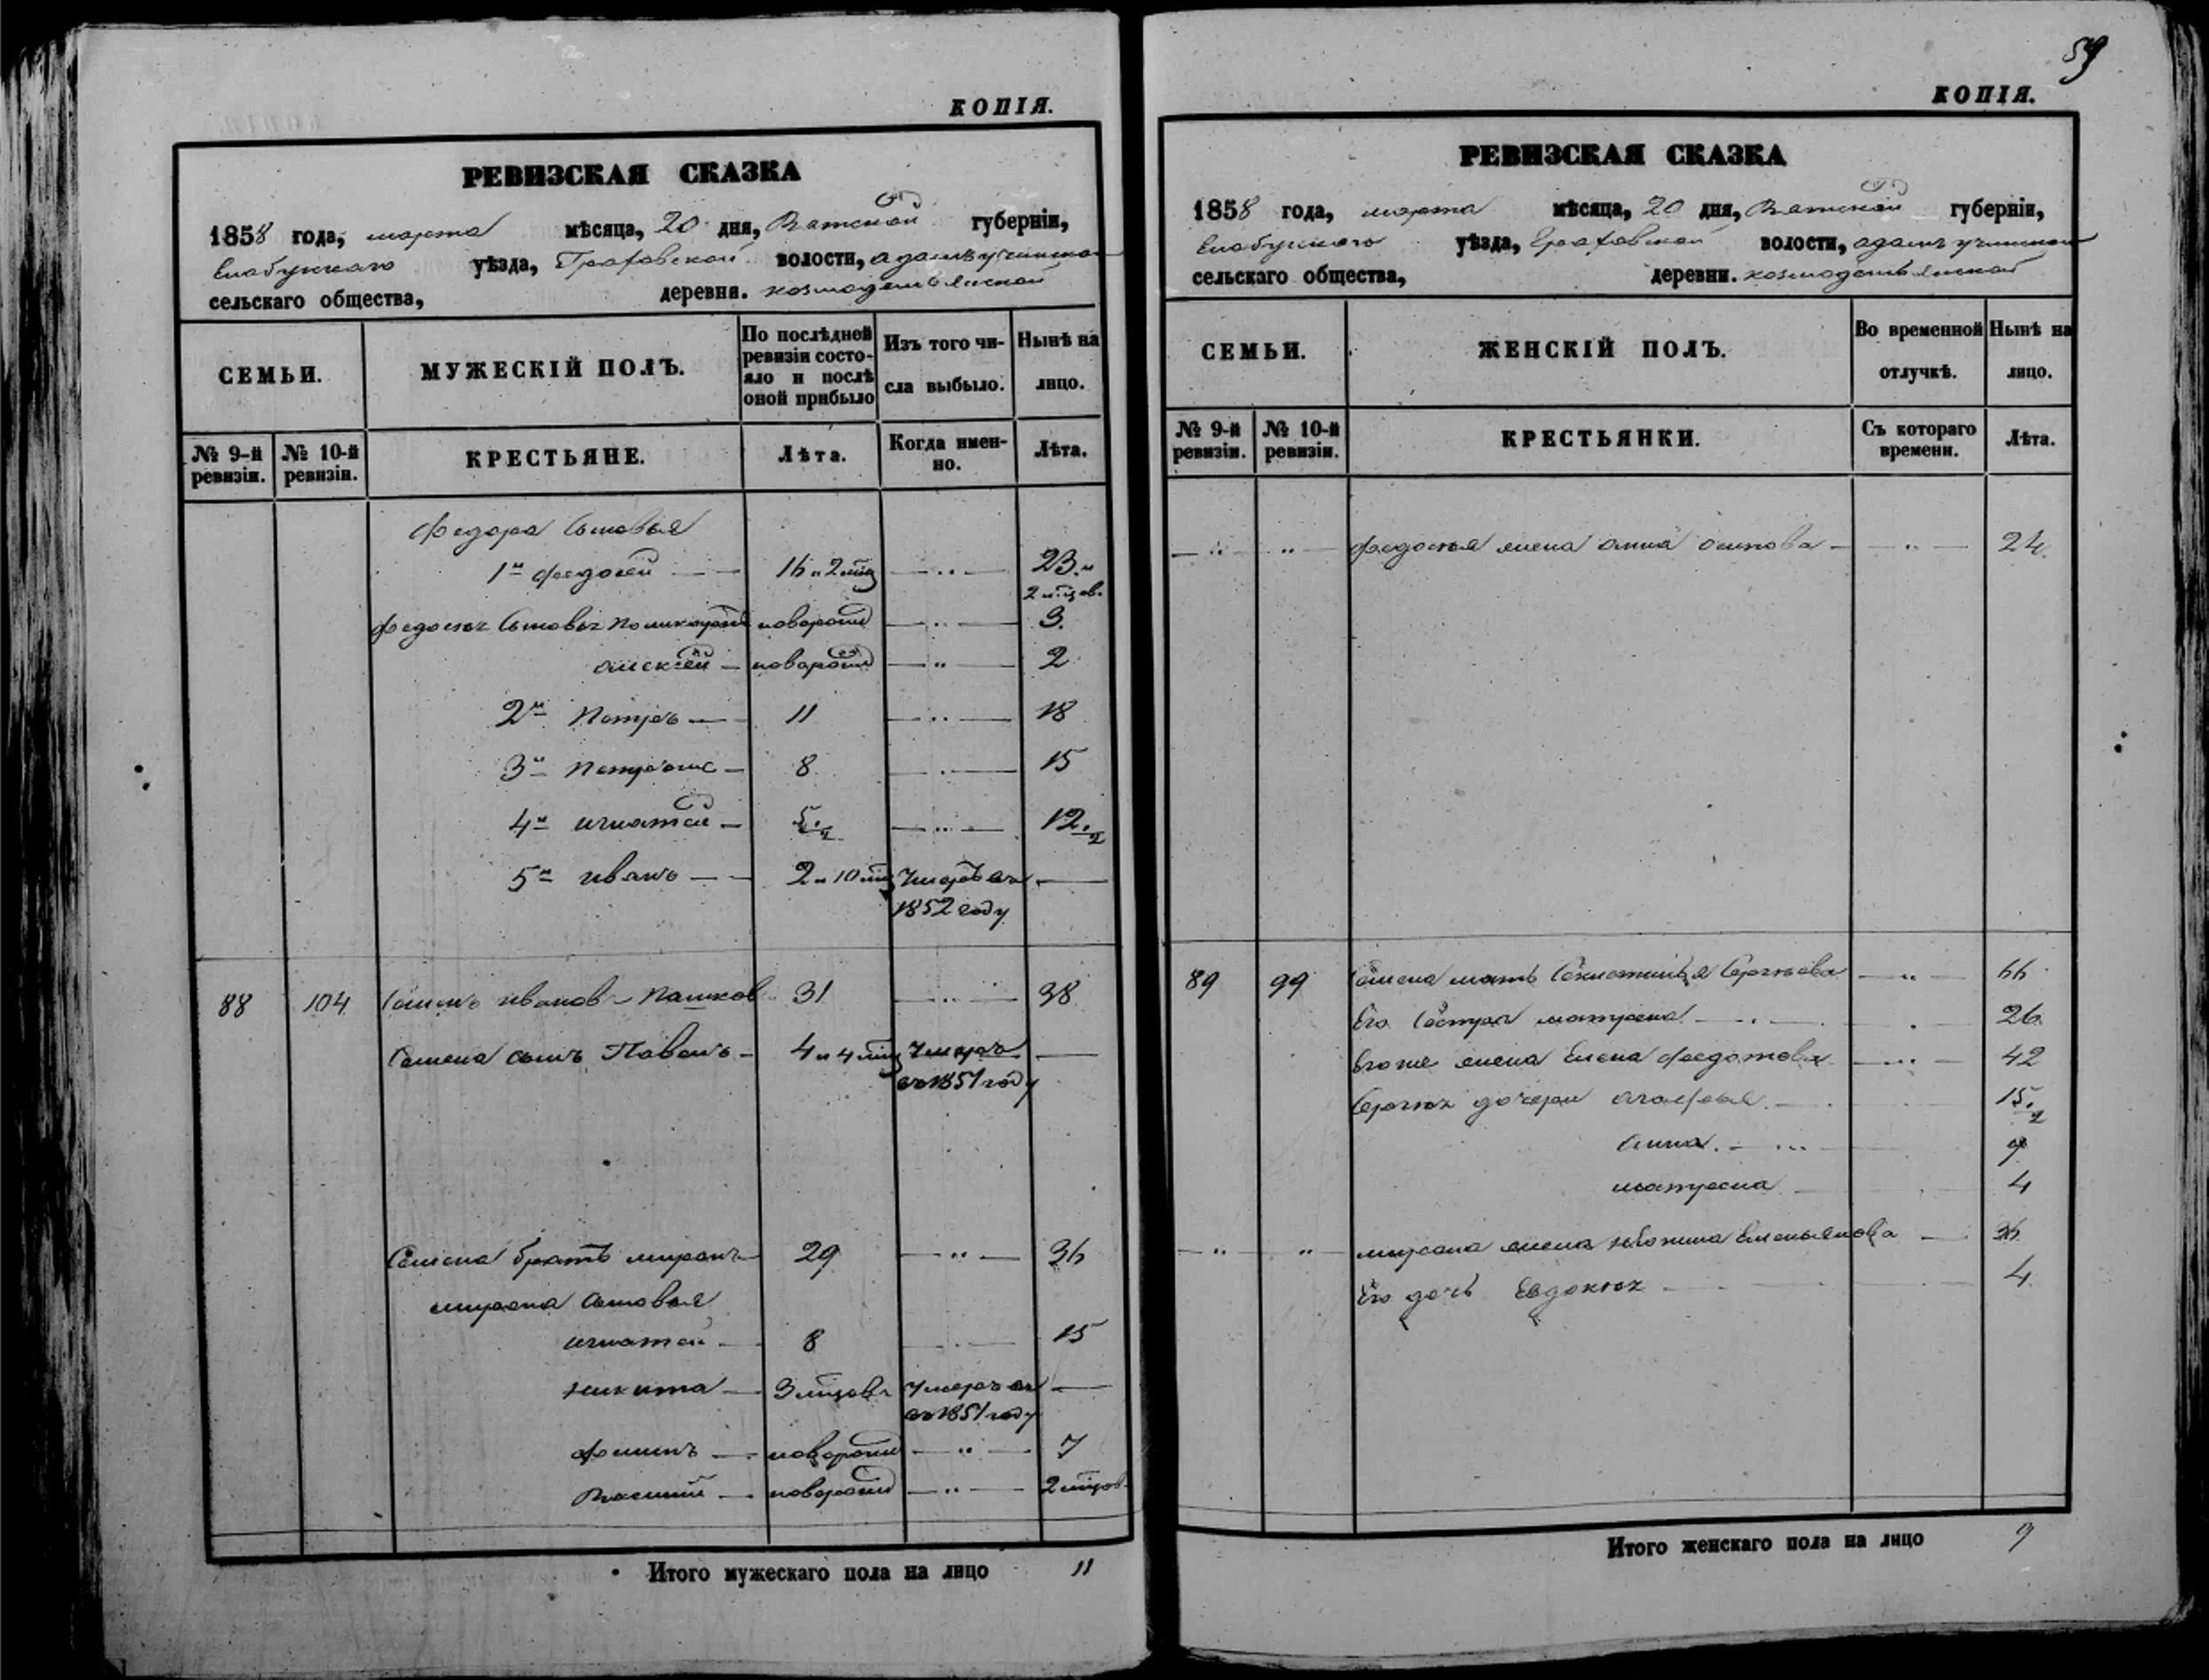 КОПІЯ.
РЕВИЗСКАЯ СКАЗКА
1858 года, марта мѣсяца, 20 дня, Вятской губерніи,
Елабужскаго уѣзда, Граховской волости,
сельскаго общества, деревни. козмодемьянской
СЕМЬИ.
МУЖЕСКІЙ ПОЛЪ.
По послѣдней ревизіи состо-
яло и послѣ оной прибыло
Изъ того чи-
сла выбыло.
Нынѣ на
лицо.
№ 9-й ревизіи.
№ 10-й ревизіи.
КРЕСТЬЯНЕ.
Лѣта.
Когда имен-
но.
Лѣта.
Федора Сыновья
1й Федосей 16 и 2 мца 23 и
2 мцов.
Федосѣя Сыновья поликарпъ новорожд 3.
алексей новорожд 2
2й Петръ 11 18
3й 8 15
4й игнатей 5 1/2 12 1/2
5й иванъ 2 и 10 мц Умеръ въ
1852 году
88 104 Семенъ иванов Пашков 31 38
Семена сынъ Павелъ 4 и 4 мц Умеръ
въ 1851 году
Семена братъ миронъ 29 36
мирона Сыновья
игнатей 8 15
никита 3 мцовъ Умеръ въ
въ 1851 году
Филипъ новорожд 7
Василий новорожд 2 мцов
Итого мужескаго пола на лицо 11
59
КОПІЯ.
РЕВИЗСКАЯ СКАЗКА
1858 года, марта мѣсяца, 20 дня, Вятской губерніи,
Елабужскаго уѣзда, Граховской волости,
сельскаго общества, деревни. козмодемьянской
СЕМЬИ.
ЖЕНСКІЙ ПОЛЪ.
Во временной
отлучкѣ.
Нынѣ на
лицо.
№ 9-й ревизіи.
№ 10-й ревизіи.
КРЕСТЬЯНКИ.
Съ котораго
времени.
Лѣта.
Федосѣя жена анна осипова 24.
89 99 Семена мать Сергѣева 66
Его Сестра матрена 26
Его же жена Елена Федотова 42
дочери агафья 15 1/2
анна 9
матрена 4
мирона жена Емельянова 36
Его дочь Евдокия 4
Итого женскаго пола на лицо 9